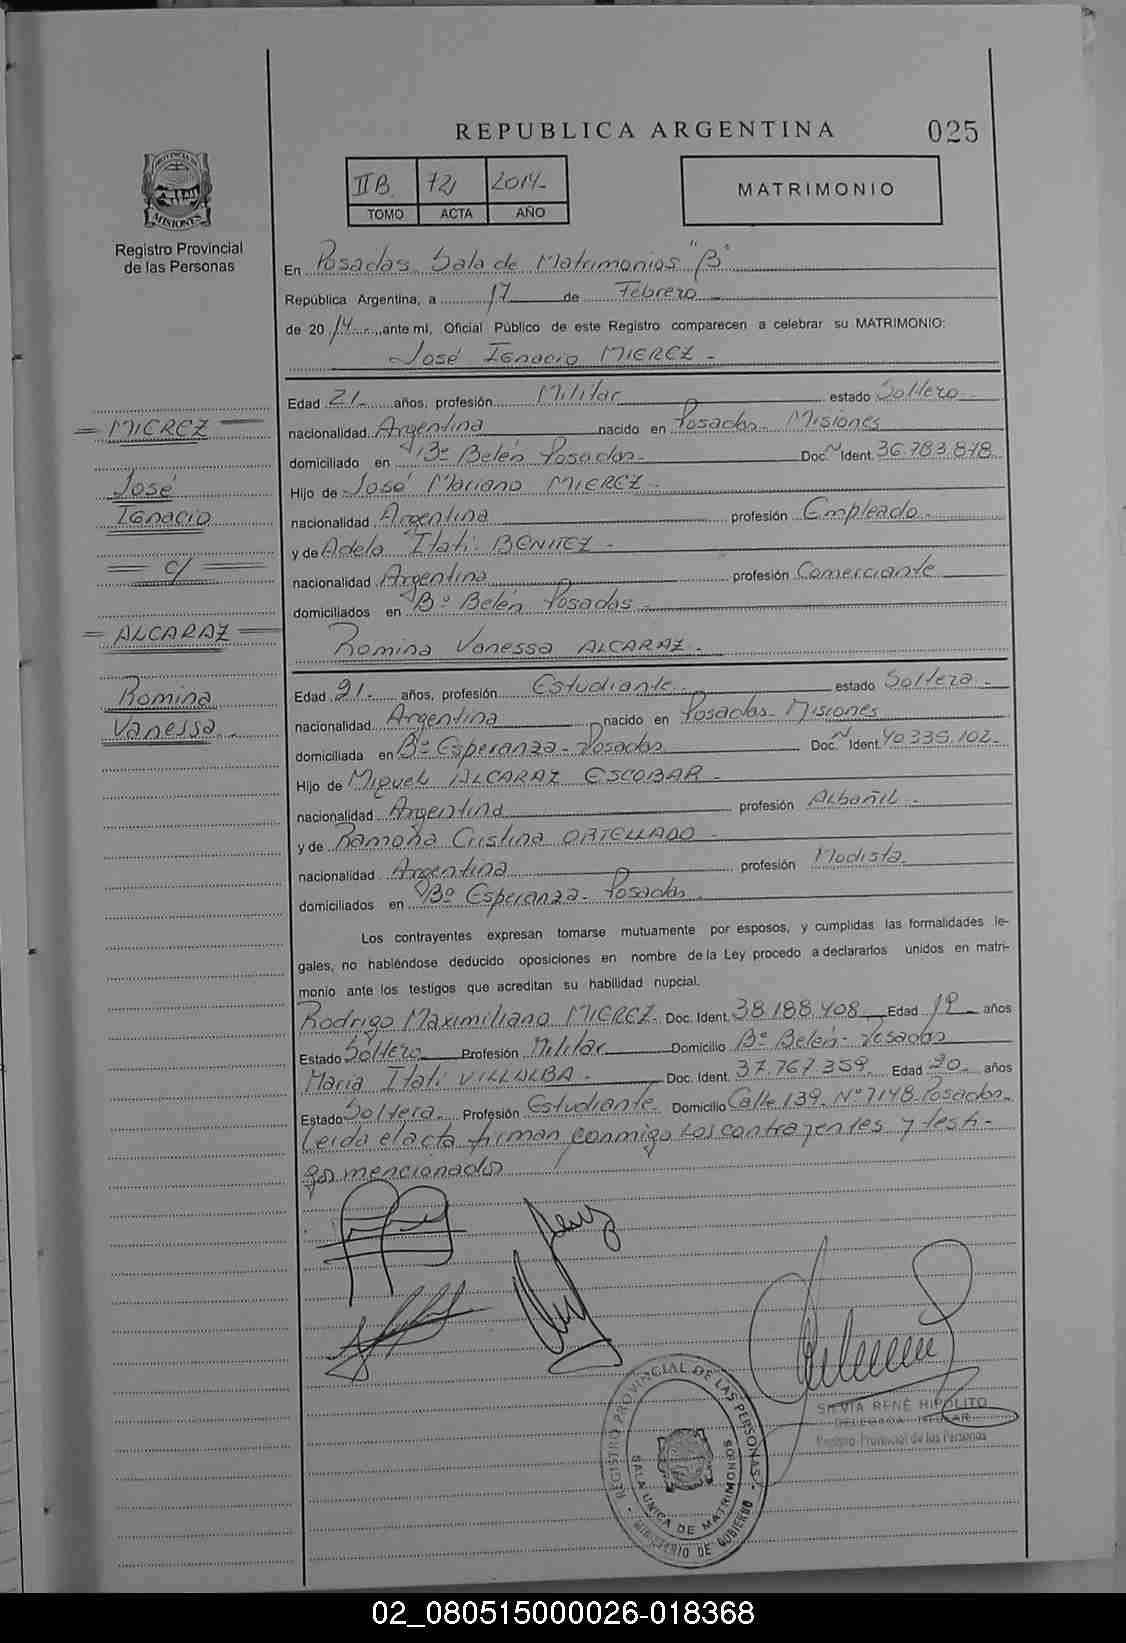 REPUBLICA ARGENTINA 025
PROVINCIA DE
MISIONES
Registro Provincial
de las Personas
II B. 72 2014-
TOMO ACTA AÑO
MATRIMONIO
En Posadas Sala de Matrimonios "B"
República Argentina, a 17 de Febrero
de 2014 ante mí, Oficial Público de este Registro comparecen a celebrar su MATRIMONIO:
José Ignacio MIEREZ -
Edad 21- años, profesión Militar estado Soltero
nacionalidad Argentina nacido en Posadas - Misiones
domiciliado en Bº Belén Posadas - Doc. N Ident. 36.783.878
Hijo de José Mariano MIEREZ -
nacionalidad Argentina profesión Empleado -
y de Adela Itatí BENITEZ -
nacionalidad Argentina profesión Comerciante
domiciliados en Bº Belén Posadas
Romina Vanessa ALCARAZ -
Edad 21- años, profesión Estudiante estado Soltera -
nacionalidad Argentina nacido en Posadas - Misiones
domiciliada en Bº Esperanza - Posadas Doc. N Ident. 40.335.102-
Hijo de Miguel ALCARAZ ESCOBAR -
nacionalidad Argentina profesión Albañil -
y de Ramona Cristina ORTELLADO -
nacionalidad Argentina profesión Modista
domiciliados en Bº Esperanza - Posadas
= MIEREZ =
José
Ignacio
= c/ =
= ALCARAZ =
Romina
Vanessa
Los contrayentes expresan tomarse mutuamente por esposos, y cumplidas las formalidades le-
gales, no habiéndose deducido oposiciones en nombre de la Ley procedo a declararlos unidos en matri-
monio ante los testigos que acreditan su habilidad nupcial.
Rodrigo Maximiliano MIEREZ - Doc. Ident. 38.188.408 Edad 19 años
Estado Soltero Profesión Militar Domicilio Bº Belén - Posadas
Maria Itatí VILLALBA - Doc. Ident. 37.767.359 Edad 20 - años
Estado Soltera Profesión Estudiante Domicilio Calle 139 - Nº 7148 - Posadas
Leida el acta firman conmigo los contrayentes y testi-
gos mencionados
SILVIA RENÉ HIPOLITO
DELEGADA TITULAR
Registro Provincial de las Personas
REGISTRO PROVINCIAL DE LAS PERSONAS
SALA UNICA DE MATRIMONIOS
- MINISTERIO DE GOBIERNO -
02_080515000026-018368